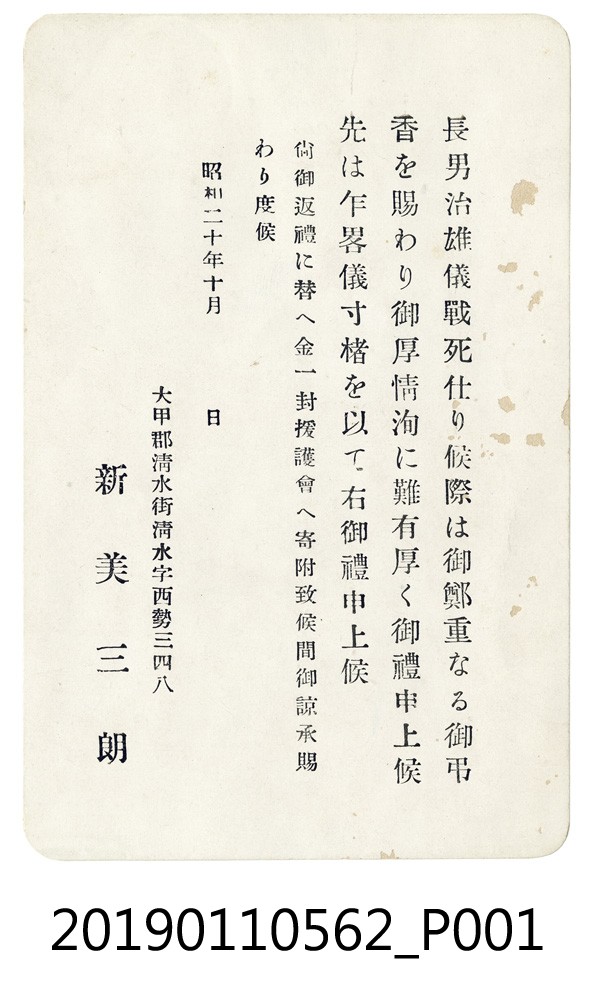 長男治雄儀戰死仕り候際は御鄭重なる御弔
香を賜わり御厚情洵に難有厚く御禮申上候
先は乍畧儀寸楮を以て右御禮申上候
尙御返禮に替へ金一封援護會へ寄附致候間御諒承賜
わり度候
昭和二十年十月　　　日
大甲郡淸水街淸水字西勢三四八
新美三朗
20190110562_P001